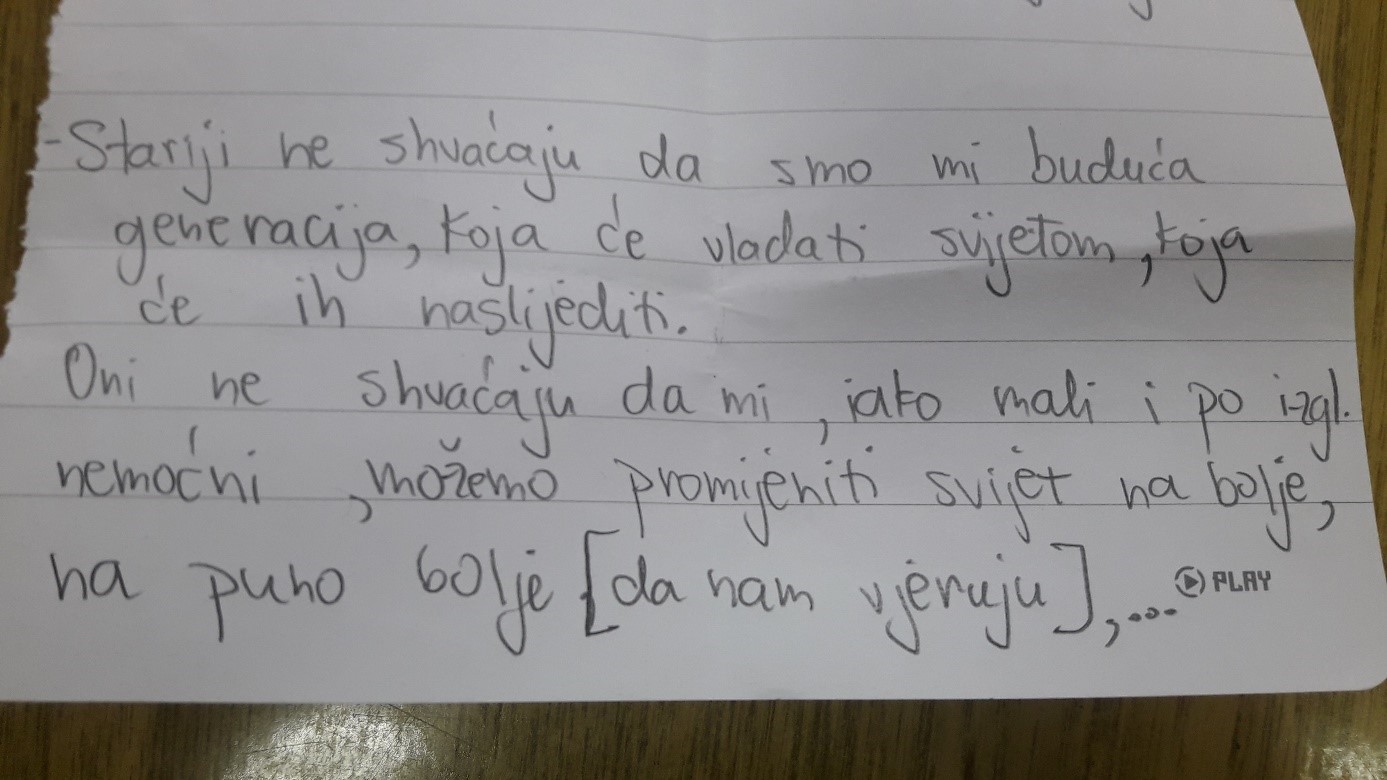 -Stariji ne shvaćaju da smo mi buduća
generacija, koja će vladati svijetom, koja
će ih naslijediti.
Oni ne shvaćaju da mi, iako mali i po izgl.
nemoćni, možemo promijeniti svijet na bolje,
na puno bolje [da nam vjeruju],...
PLAY